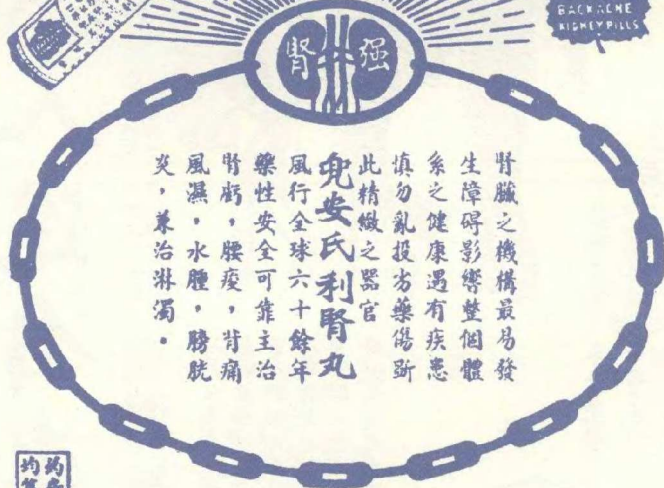 BACKACHE
KIDNEY PILLS
強腎
腎臟之機構最易發
生障碍影響整個體
系之健康遇有疾患
慎勿亂投劣藥傷斲
此精緻之器官
兜安氏利腎丸
風行全球六十餘年
藥性安全可靠主治
腎虧，腰痠，背痛
風濕，水腫，膀胱
炎，兼治淋濁。